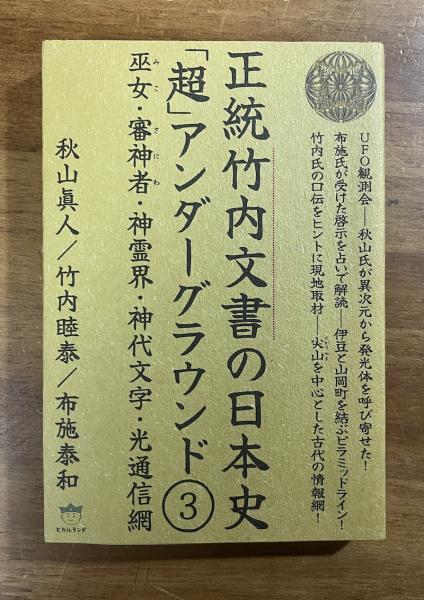 UFO観測会──秋山氏が異次元から発光体を呼び寄せた!
布施氏が受けた啓示を占いで解読 伊豆と山岡町を結ぶピラミッドライン!
竹内氏の口伝をヒントに現地取材──尖山を中心とした古代の情報網!
正統竹内文書の日本史
「超」アンダーグラウンド③
巫女・審神者・神霊界・神代文字・光通信網
秋山眞人/竹内睦泰/布施泰和
ヒカルランド